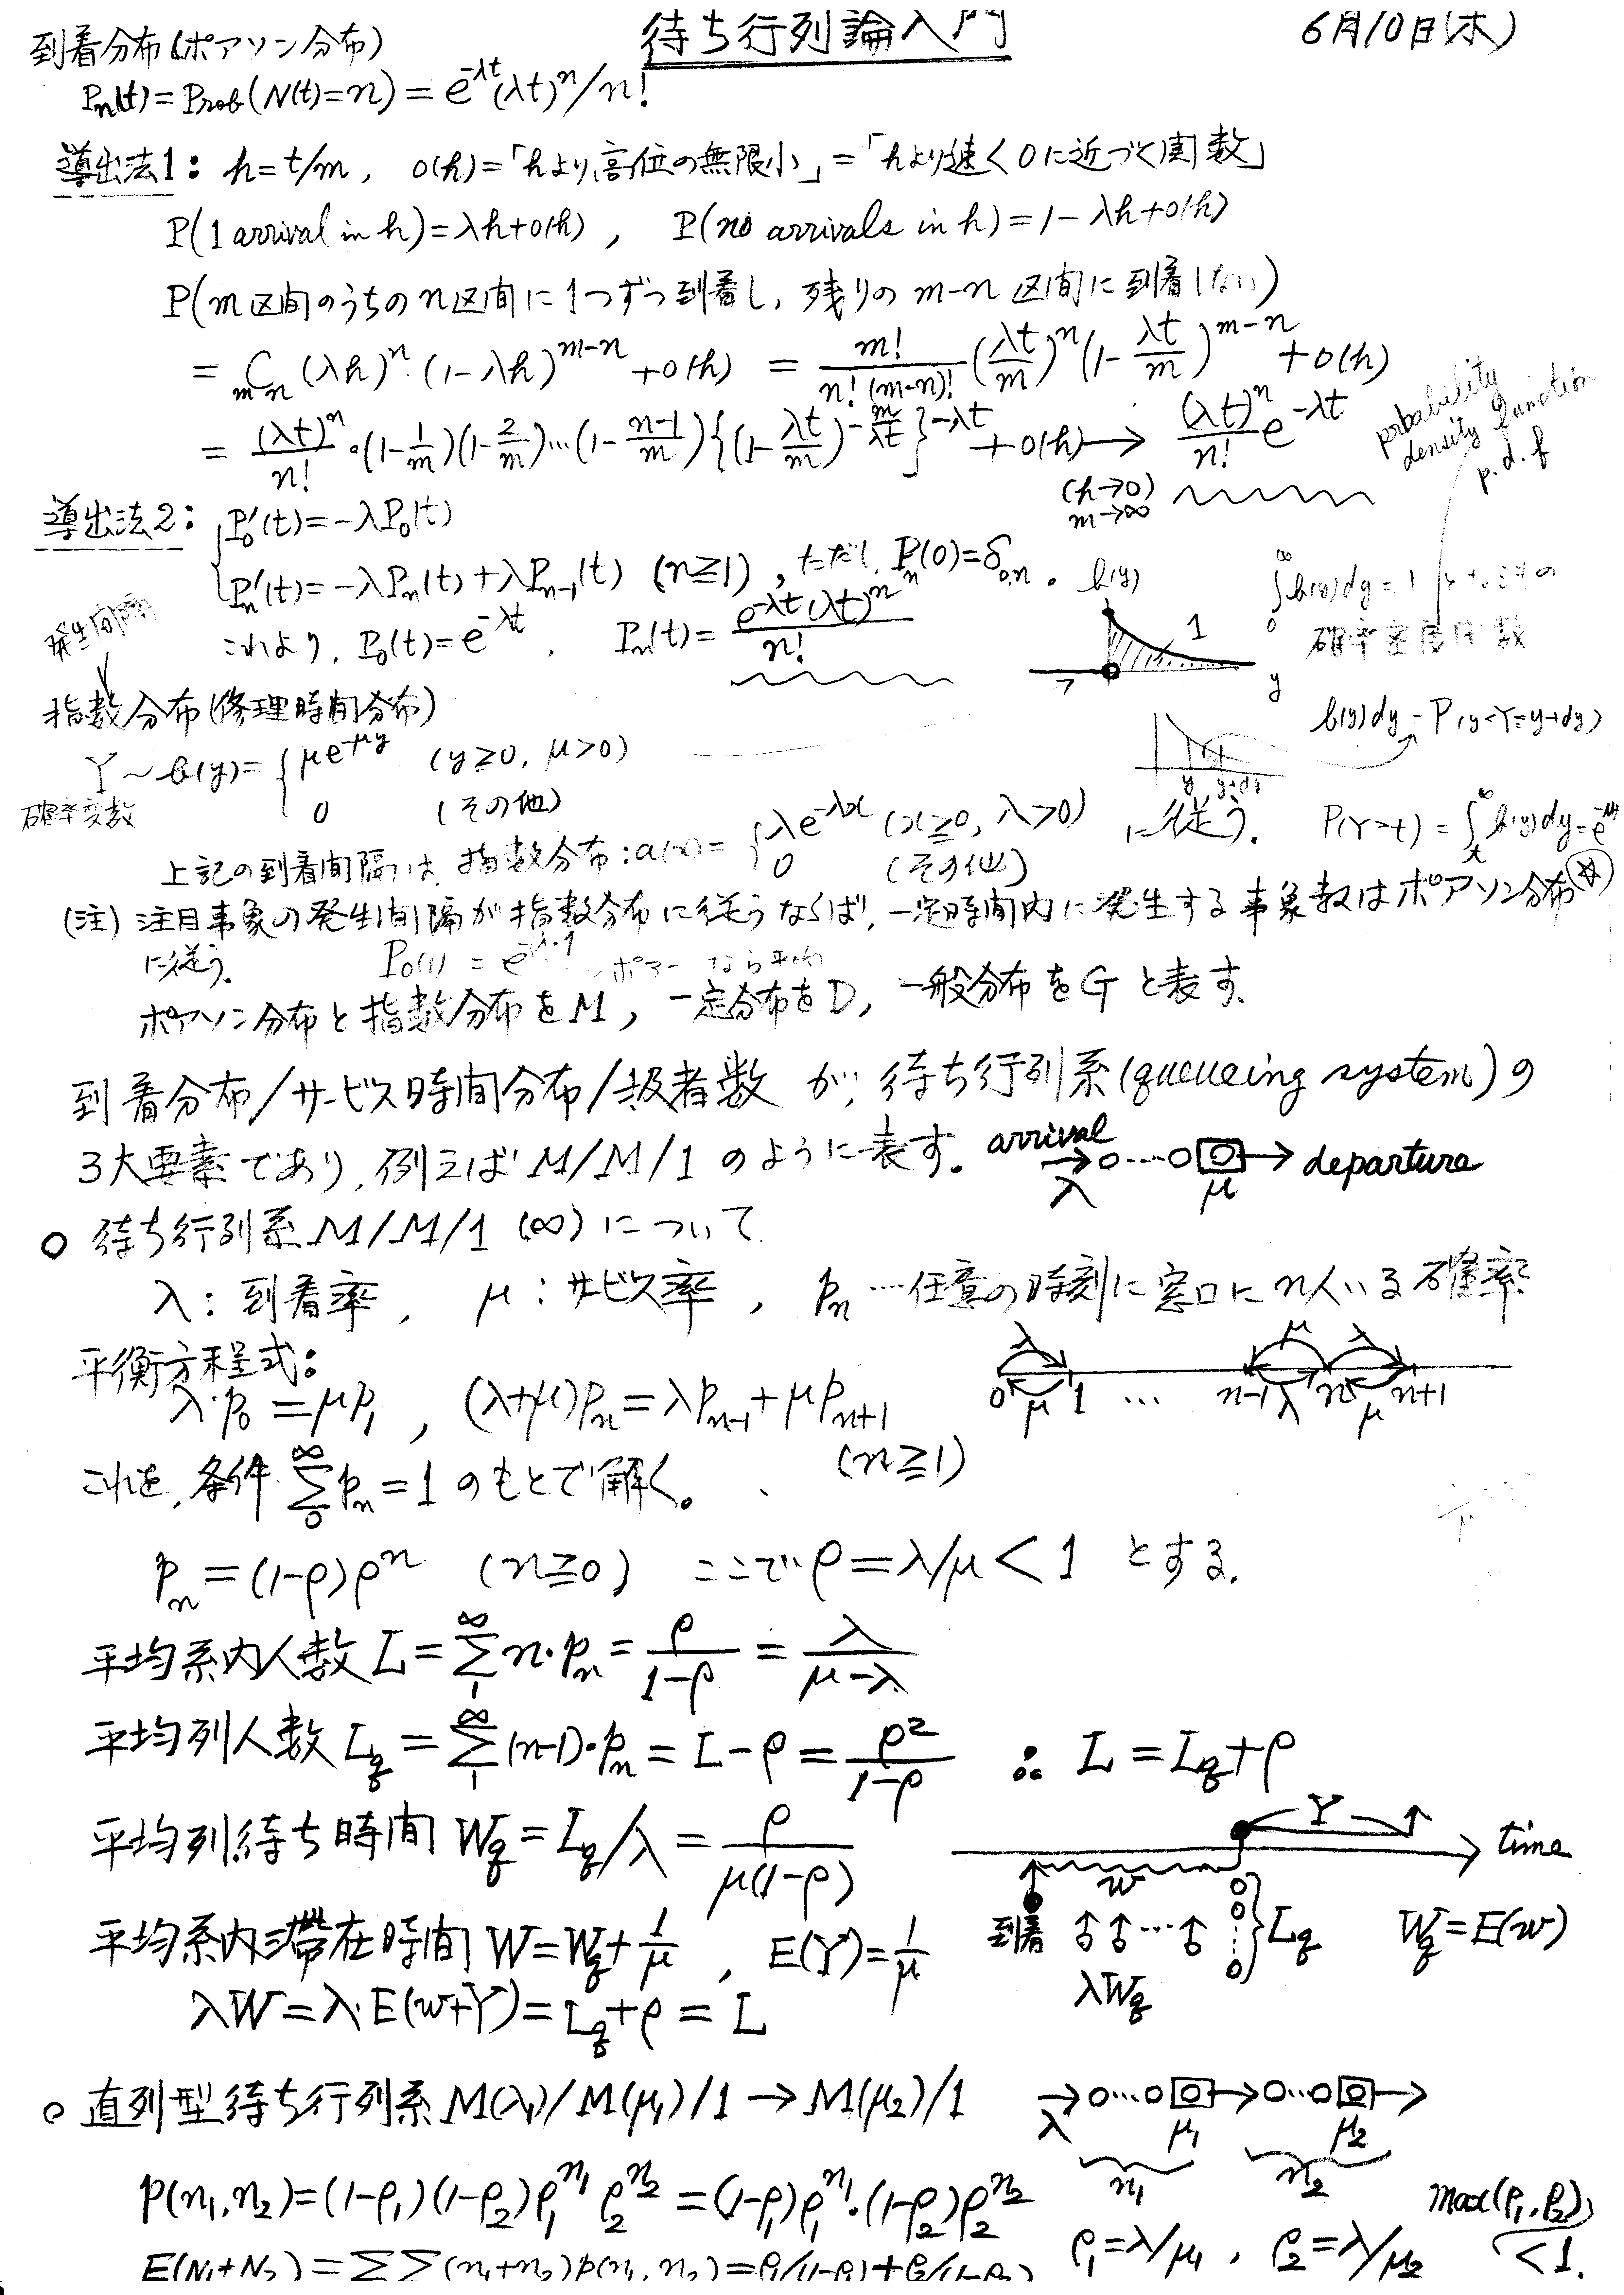 待ち行列論入門
6月10日(木)
到着分布(ポアソン分布)
Pn(t)=Prob(N(t)=n)=e^{-λt}(λt)^n/n!
導出法1: h=t/m, o(h)=「hより高位の無限小」=「hより速く0に近づく関数」
P(1 arrival in h)=λh+o(h), P(no arrivals in h)=1-λh+o(h)
P(m区間のうちのn区間に1つずつ到着し, 残りのm-n区間に到着しない)
= mCn (λh)^n・(1-λh)^{m-n}+o(h) = m!/(n!(m-n)!) (λt/m)^n (1-λt/m)^{m-n} + o(h)
= (λt)^n/n!・(1-1/m)(1-2/m)…(1-(n-1)/m){(1-λt/m)^{-m/λt}}^{-λt} + o(h) → (λt)^n/n! e^{-λt}
(h→0)
m→∞
probability
density function
p.d.f
導出法2: P0'(t)=-λP0(t)
Pn'(t)=-λPn(t)+λPn-1(t) (n≧1), ただし, Pn(0)=δ0,n。
これより, P0(t)=e^{-λt}, Pn(t)=e^{-λt}(λt)^n/n!
b(y)
1
y
∫0^∞ b(y)dy=1
確率密度関数
発生間隔
指数分布(修理時間分布)
Y~b(y)={μe^{-μy} (y≧0, μ>0)
0 (その他)
確率変数
b(y)dy=P(y<Y≦y+dy)
y y+dy
上記の到着間隔は, 指数分布:a(x)={λe^{-λx} (x≧0, λ>0) に従う.
0 (その他)
P(Y>t)=∫t^∞ b(y)dy=e^{-μt}
(注) 注目事象の発生間隔が指数分布に従うならば, 一定時間内に発生する事象数はポアソン分布
に従う.
P0(1)=e^{-λ・1}
ポアソン分布と指数分布をM, 一定分布をD, 一般分布をGと表す.
到着分布/サービス時間分布/扱者数 が, 待ち行列系(queueing system)の
3大要素であり, 例えば M/M/1 のように表す。
arrival
λ
μ
departure
○ 待ち行列系 M/M/1 (∞) について
λ: 到着率, μ: サービス率, pn …任意の時刻に窓口にn人いる確率
平衡方程式:
λ・p0=μp1, (λ+μ)pn=λpn-1+μpn+1
(n≧1)
λ μ λ
0 1 … n-1 n n+1
μ λ μ
これを, 条件 Σ0^∞ pn=1 のもとで解く。
pn=(1-ρ)ρ^n (n≧0) ここで ρ=λ/μ<1 とする.
平均系内人数 L=Σ1^∞ n・pn=ρ/(1-ρ)=λ/(μ-λ)
平均列人数 Lq=Σ1^∞ (n-1)・pn=L-ρ=ρ²/(1-ρ) ∴ L=Lq+ρ
平均列待ち時間 Wq=Lq/λ=ρ/(μ(1-ρ))
Y
time
w
到着
λWq
Lq
Wq=E(w)
平均系内滞在時間 W=Wq+1/μ, E(Y)=1/μ
λW=λ・E(w+Y)=Lq+ρ=L
○ 直列型待ち行列系 M(λ)/M(μ1)/1 → M(μ2)/1
λ
μ1
μ2
n1
n2
p(n1,n2)=(1-ρ1)(1-ρ2)ρ1^{n1}ρ2^{n2}=(1-ρ1)ρ1^{n1}・(1-ρ2)ρ2^{n2}
ρ1=λ/μ1, ρ2=λ/μ2
max(ρ1,ρ2)
<1.
E(N1+N2)=ΣΣ(n1+n2)p(n1,n2)=ρ1/(1-ρ1)+ρ2/(1-ρ2)